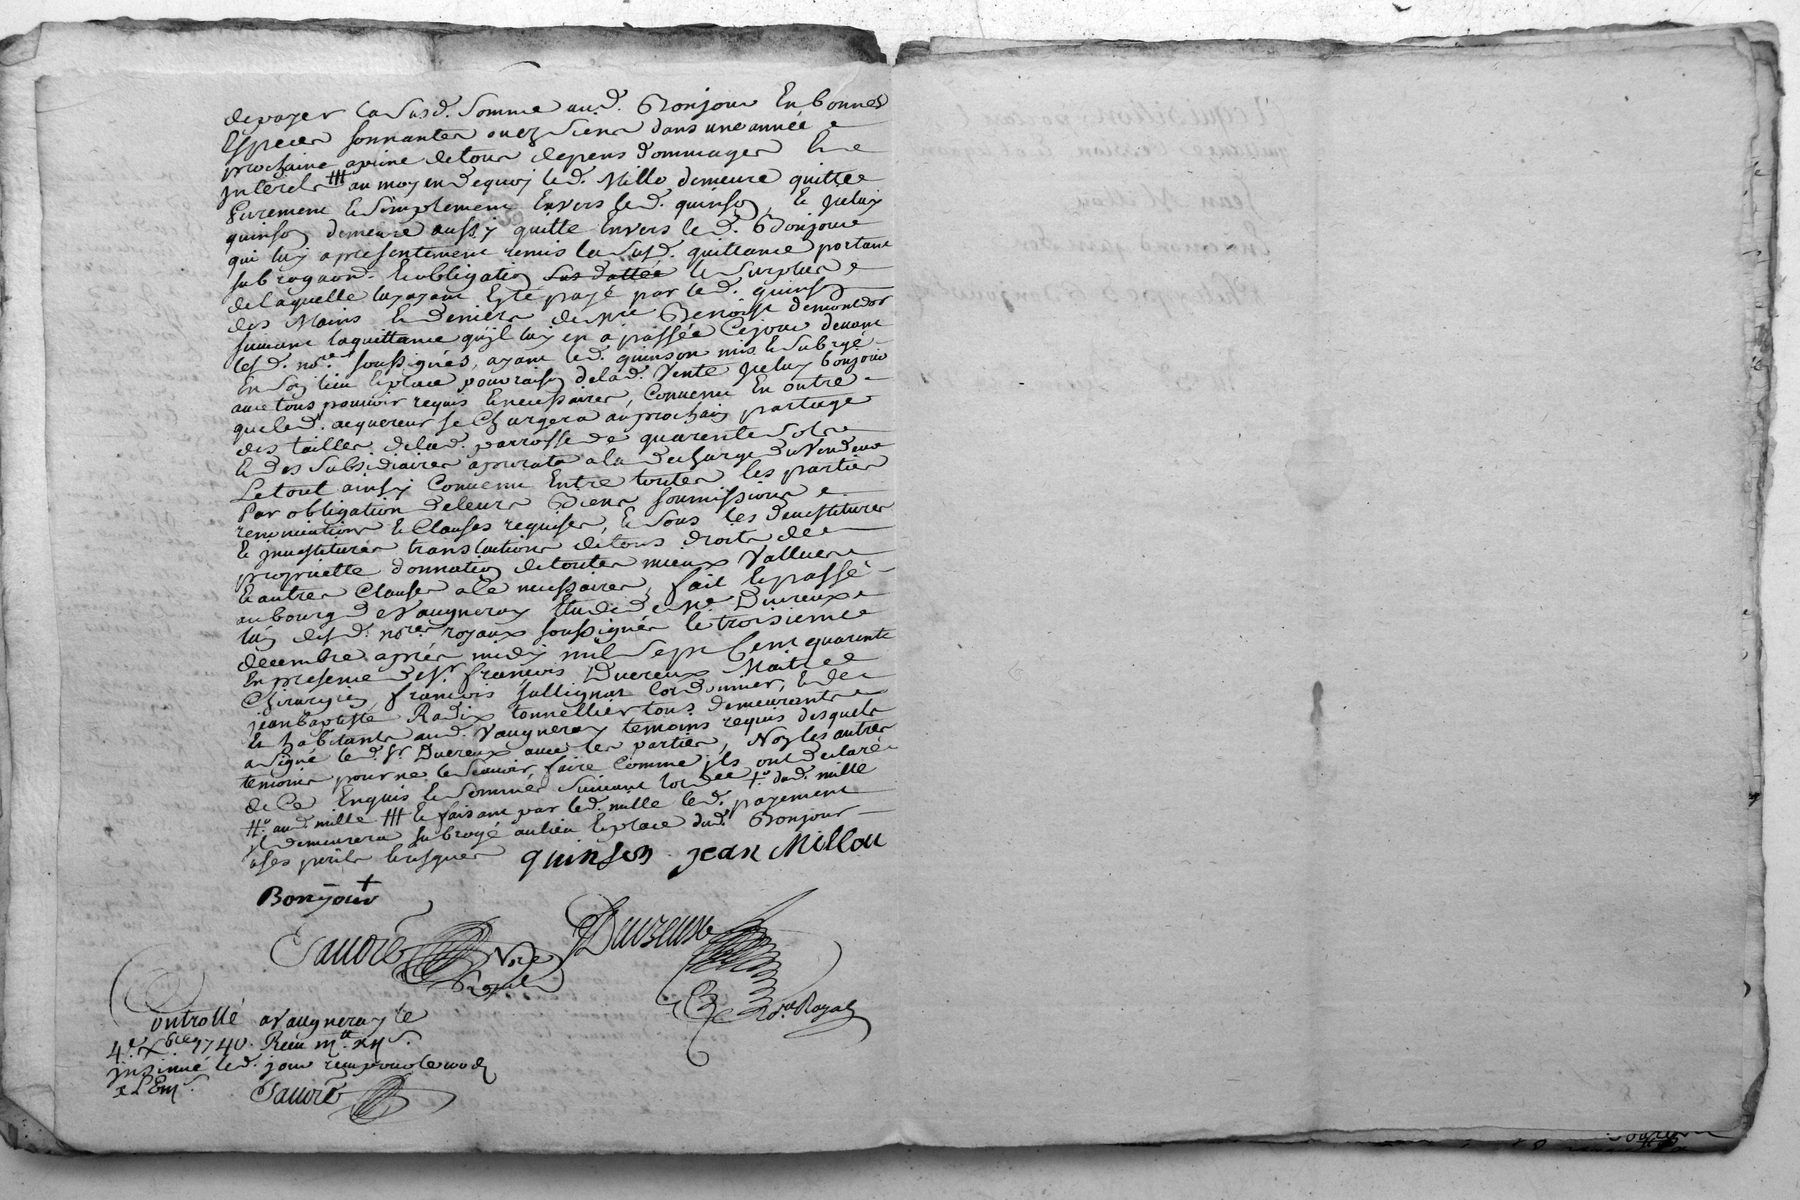 depayer la susd. somme aud. Bonjour En bonnes
Especes sonnantes ou ez siens dans une année
prochaine apeine detous depens dommages Et
jnterets ttt au moyen dequoy led. Millo demeure quitte
Purement & simplement Envers led. quinson, & jceluy
quinson demeure aussy quitte Envers led. Bonjour
qui luy apresentement remis la susd. quittance portant
subrogaon. & obligation sus dattée le surplus
delaquelle luy ayant Esté payé par led. quinson
des Mains & deniers de Benoist demontdor
suivant laquittance qujl luy en a passée Cejour devant
lesd. nores soussignés, ayant led. quinson mis & subrogé
En son lieu & place pour raison delad. Vente jceluy bonjour
avec tous pouvoir requis & necessaires, Convenu En outre
que led. acquereur se Chargera au prochain partage
des tailles delad. parroisse de quarente sols
& des subsidiaires aprorata ala decharge du Vendeur
Le tout ainsy Convenu Entre toutes les parties
Par obligation deleurs Biens soumissions
renonciations & Clauses requises, & sous les devestitures
& jnvestitures translations detous droits de
proprietté donnation detoutes mieux Vallues
& autres Clauses ace necessaires, fait & passé
au bourg de Vaugneray Etude de Me. Duvreux
lun desd. nores royaux soussignés le troisieme
decembre aprés midy mil sept Cent quarente
En presence de sr. francois Duvreux Maitre
Chirurgien, francois jullignat Cordonnier, & de
jean baptiste Radix tonnellier tous demeurants
& habitants aud. Vaugneray temoins requis desquels
a signé led. sr. Duvreux avec les parties, Non les autres
temoins pour ne le scavoir faire Comme jls ont declaré
de Ce Enquis & sommés suivant lordce dud. mille
tt. aud. mille ttt & faisant par led. mille led. payement
jl demeurera subrogé au lieu & place dud. Bonjour
ases perils & risques quinson jean Millou
Bonjour
Sauvré Nore Duvreux
Royal Nore Royal
Controllé a Vaugneray le
4e. Xbre 1740. Reçu
jnsinué led. jour
Sauvré